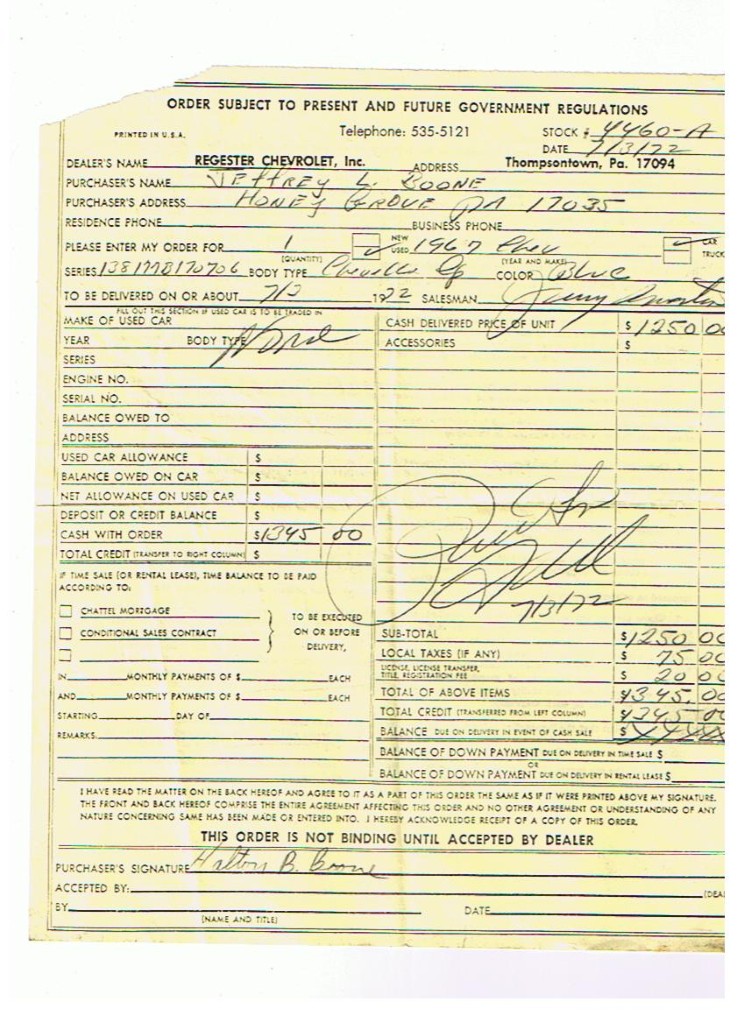 ORDER SUBJECT TO PRESENT AND FUTURE GOVERNMENT REGULATIONS
PRINTED IN U.S.A. Telephone: 535-5121 STOCK # 4460-A
DATE 7/3/72
DEALER'S NAME REGESTER CHEVROLET, Inc. ADDRESS Thompsontown, Pa. 17094
PURCHASER'S NAME Jeffrey L. Boone
PURCHASER'S ADDRESS Honey Grove PA 17035
RESIDENCE PHONE BUSINESS PHONE
PLEASE ENTER MY ORDER FOR 1 NEW USED 1967 Chev CAR TRUCK
(QUANTITY) (YEAR AND MAKE)
SERIES 138177B170706 BODY TYPE Chevelle COLOR Blue
TO BE DELIVERED ON OR ABOUT 7/3 1972 SALESMAN
FILL OUT THIS SECTION IF USED CAR IS TO BE TRADED IN
MAKE OF USED CAR CASH DELIVERED PRICE OF UNIT $ 1250 00
YEAR BODY TYPE None ACCESSORIES $
SERIES
ENGINE NO.
SERIAL NO.
BALANCE OWED TO
ADDRESS
USED CAR ALLOWANCE $
BALANCE OWED ON CAR $
NET ALLOWANCE ON USED CAR $
DEPOSIT OR CREDIT BALANCE $
CASH WITH ORDER $1345 00
TOTAL CREDIT (TRANSFER TO RIGHT COLUMN) $
IF TIME SALE (OR RENTAL LEASE), TIME BALANCE TO BE PAID
ACCORDING TO:
CHATTEL MORTGAGE
CONDITIONAL SALES CONTRACT
TO BE EXECUTED
ON OR BEFORE
DELIVERY,
IN MONTHLY PAYMENTS OF $ EACH
AND MONTHLY PAYMENTS OF $ EACH
STARTING DAY OF
REMARKS
Paid In
Full
7/3/72
SUB-TOTAL $1250 00
LOCAL TAXES (IF ANY) $ 75 00
LICENSE, LICENSE TRANSFER,
TITLE, REGISTRATION FEE $ 20 00
TOTAL OF ABOVE ITEMS $1345.00
TOTAL CREDIT (TRANSFERRED FROM LEFT COLUMN) $1345 00
BALANCE DUE ON DELIVERY IN EVENT OF CASH SALE $ XXXX
BALANCE OF DOWN PAYMENT DUE ON DELIVERY IN TIME SALE $
OR
BALANCE OF DOWN PAYMENT DUE ON DELIVERY IN RENTAL LEASE $
I HAVE READ THE MATTER ON THE BACK HEREOF AND AGREE TO IT AS A PART OF THIS ORDER THE SAME AS IF IT WERE PRINTED ABOVE MY SIGNATURE.
THE FRONT AND BACK HEREOF COMPRISE THE ENTIRE AGREEMENT AFFECTING THIS ORDER AND NO OTHER AGREEMENT OR UNDERSTANDING OF ANY
NATURE CONCERNING SAME HAS BEEN MADE OR ENTERED INTO. I HEREBY ACKNOWLEDGE RECEIPT OF A COPY OF THIS ORDER.
THIS ORDER IS NOT BINDING UNTIL ACCEPTED BY DEALER
PURCHASER'S SIGNATURE Halton B. Boone
ACCEPTED BY: (DEA
BY DATE
(NAME AND TITLE)